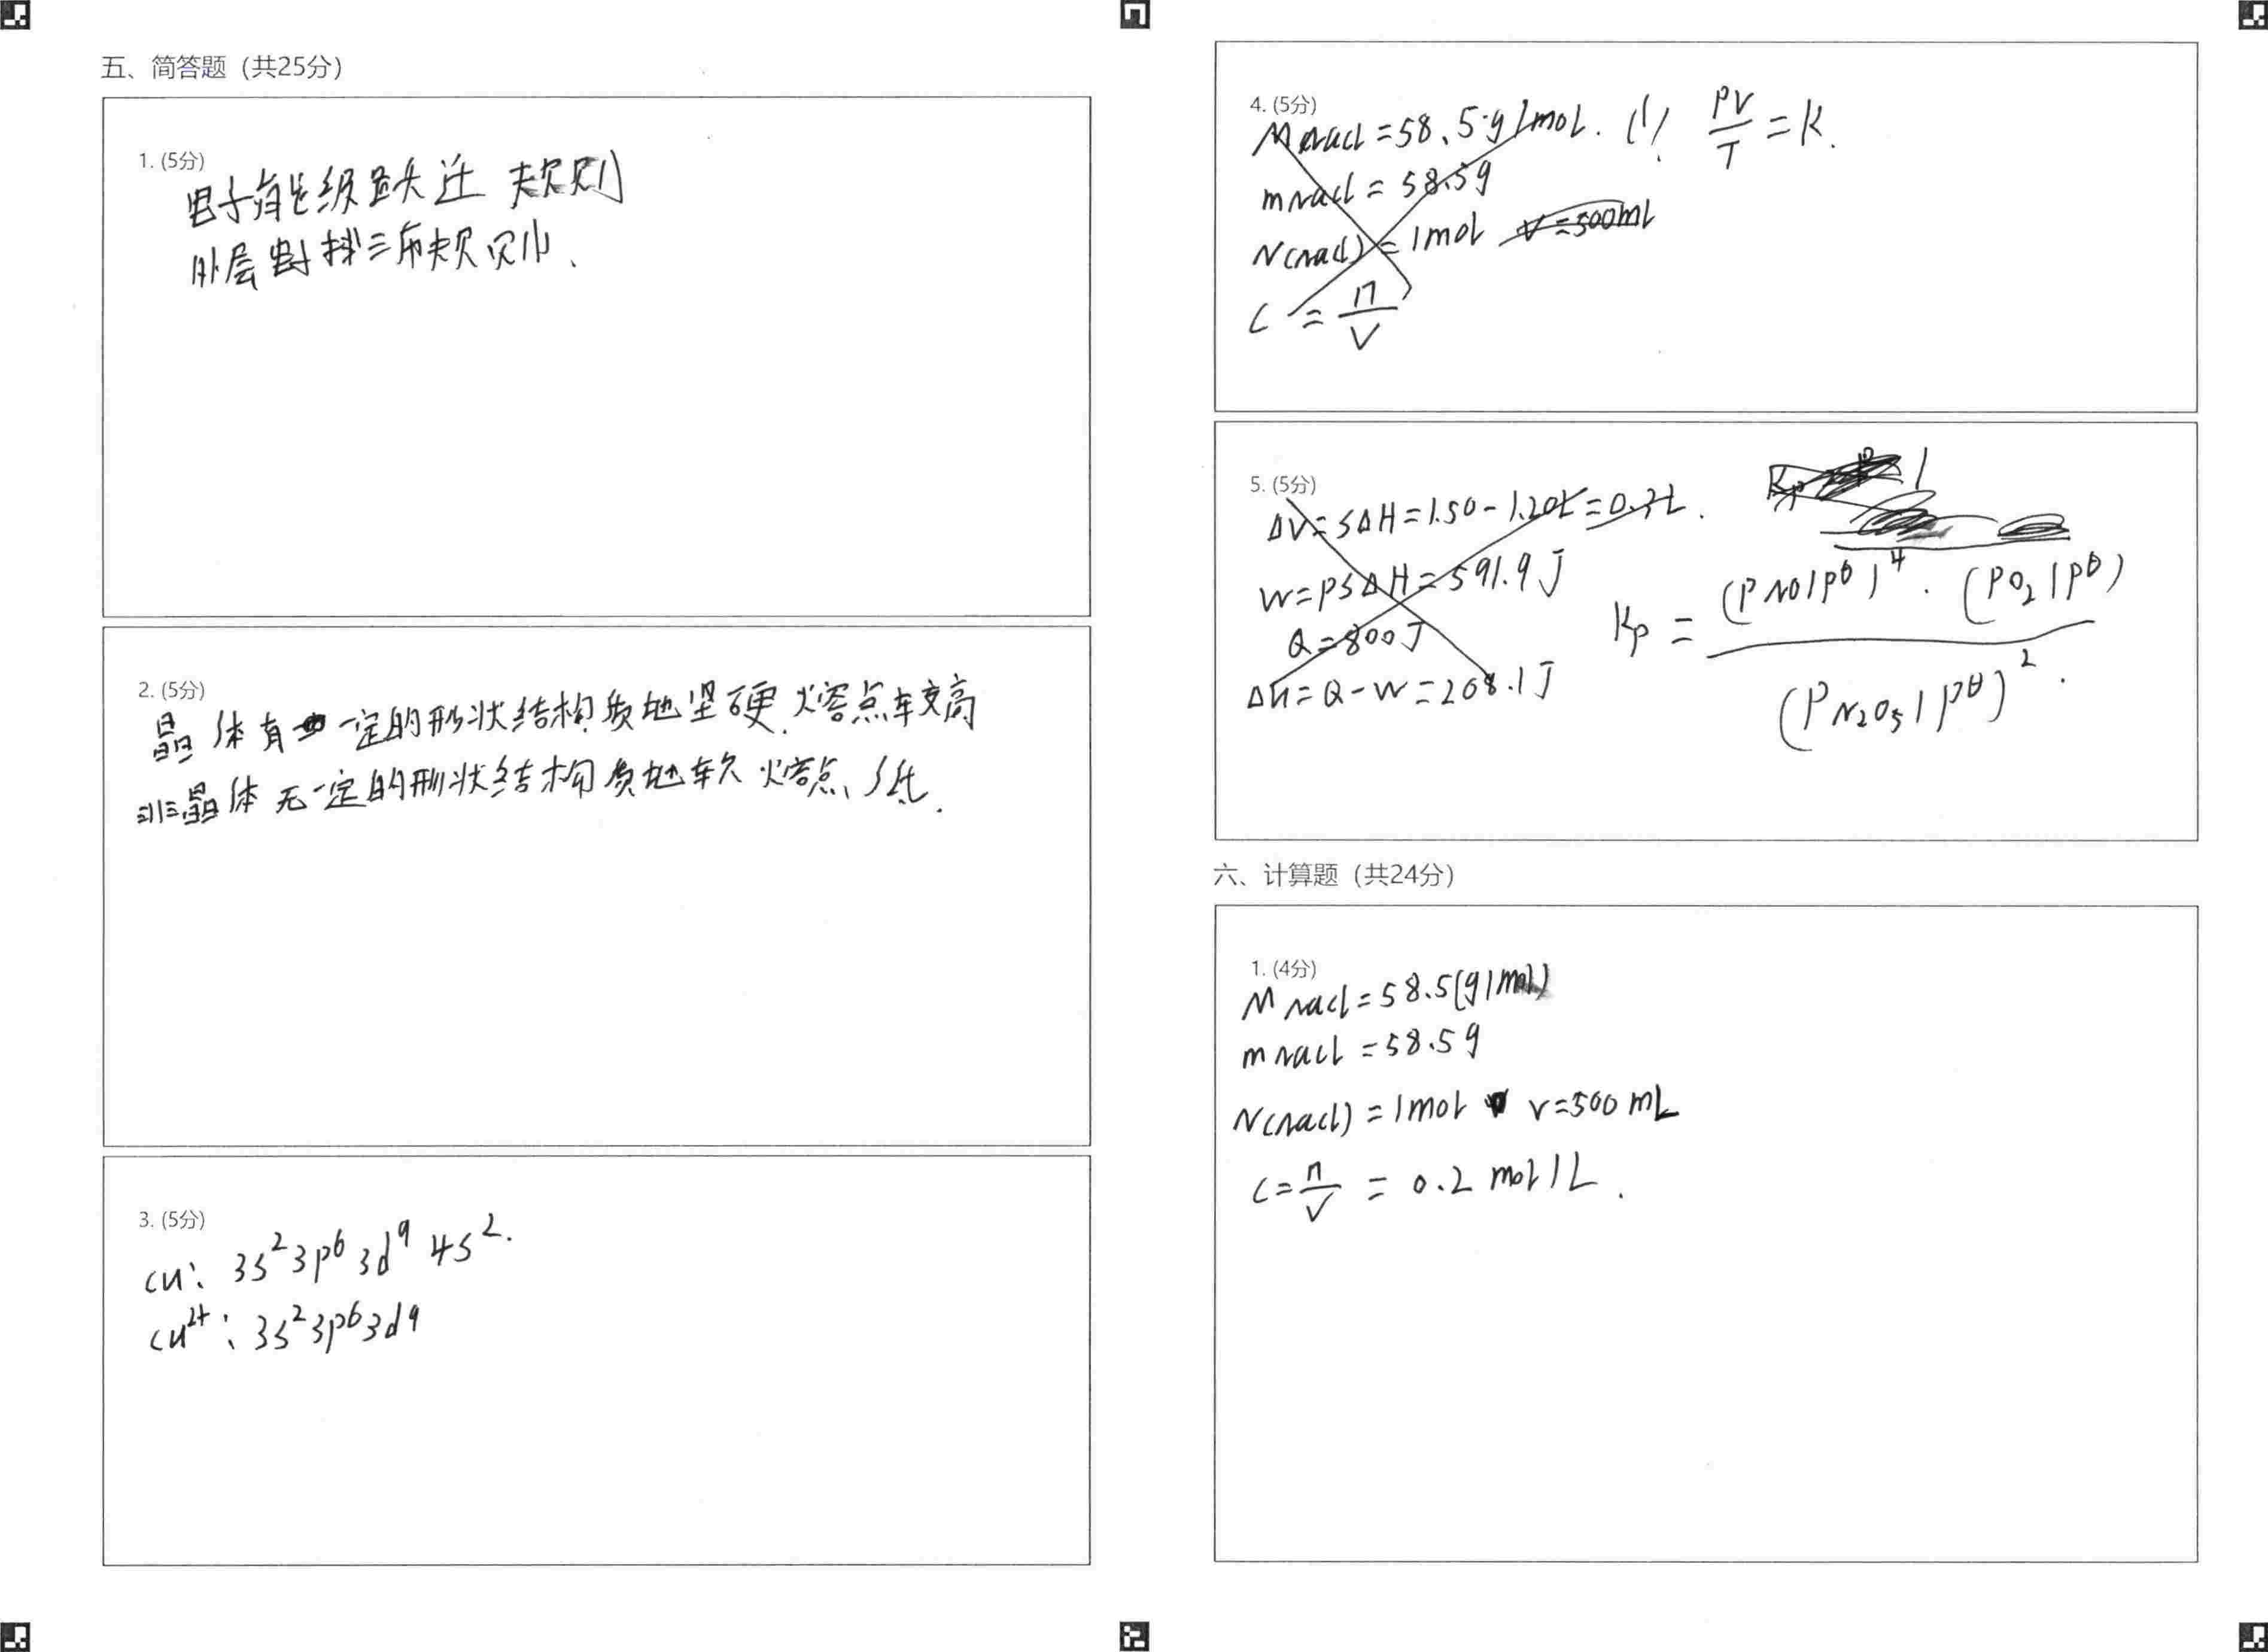 五、简答题（共25分）
1. (5分)
电子能级跃迁 规则
外层电子排布规则、
2. (5分)
晶体有一定的形状结构,质地坚硬.熔点较高
非晶体无一定的形状结构质地软熔点低.
3. (5分)
cu: 3s² 3p⁶ 3d⁹ 4s².
cu²⁺: 3s² 3p⁶ 3d9
4. (5分)
M nacl = 58.5g/mol. (1) PV/T = K.
m nacl = 58.5g
N(nacl) = 1mol V=500ml
C = n/V
5. (5分)
ΔV=SΔH=1.50-1.20L=0.3L.
W=PSΔH=591.9J
Q=800J
ΔH=Q-W=208.1J
Kp = (P NO/P^θ)⁴ · (P O₂/P^θ) / (P N₂O₅/P^θ)².
六、计算题（共24分）
1. (4分)
M nacl = 58.5(g/mol)
m nacl = 58.5g
N(nacl) = 1mol V=500mL
C = n/V = 0.2 mol/L.